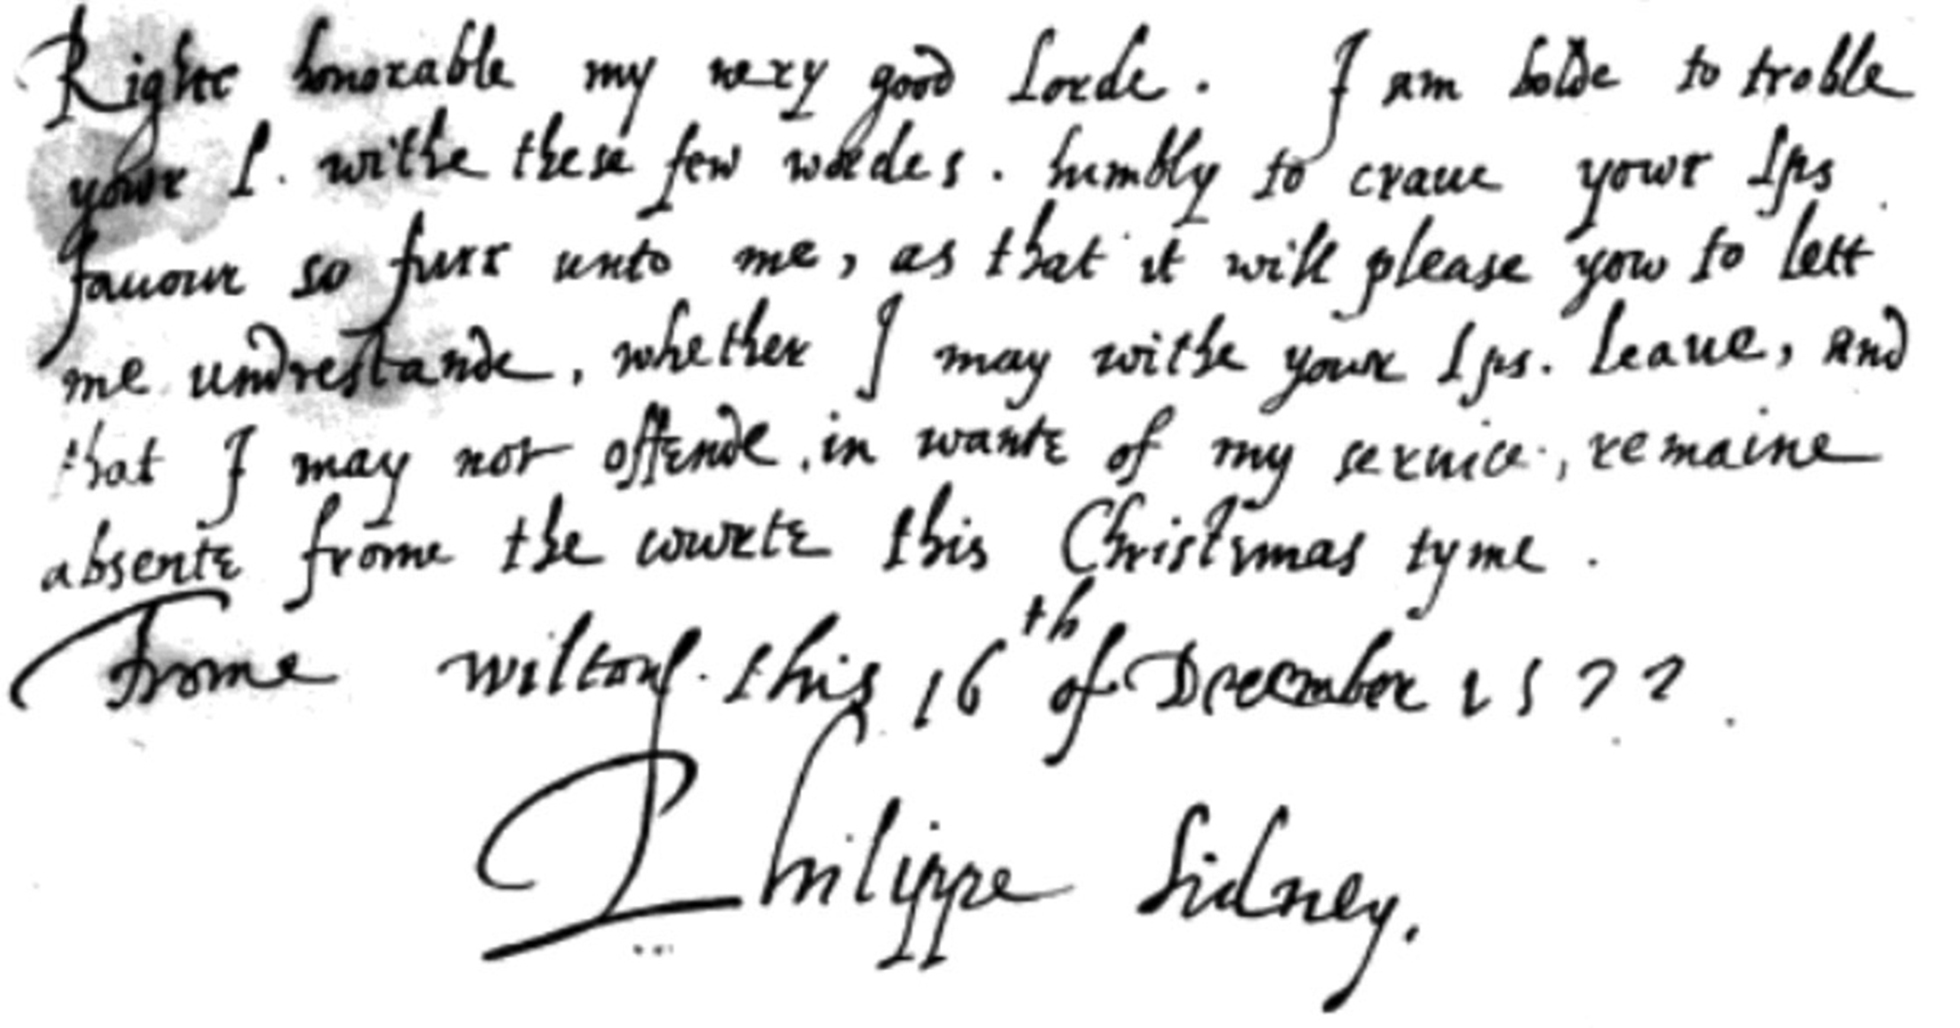 Righte honorable my very good Lorde. I am bolde to troble
yowr L. withe these few wordes. humbly to craue yowr Lps
fauour so furr unto me, as that it will please yow to lett
me undrestande, whether I may withe yowr Lps. leaue, and
that I may not offende, in wante of my seruice, remaine
absente frome the cowrte this Christsmas tyme.
Frome wilton. this 16th of December 1577.
Philippe Sidney.